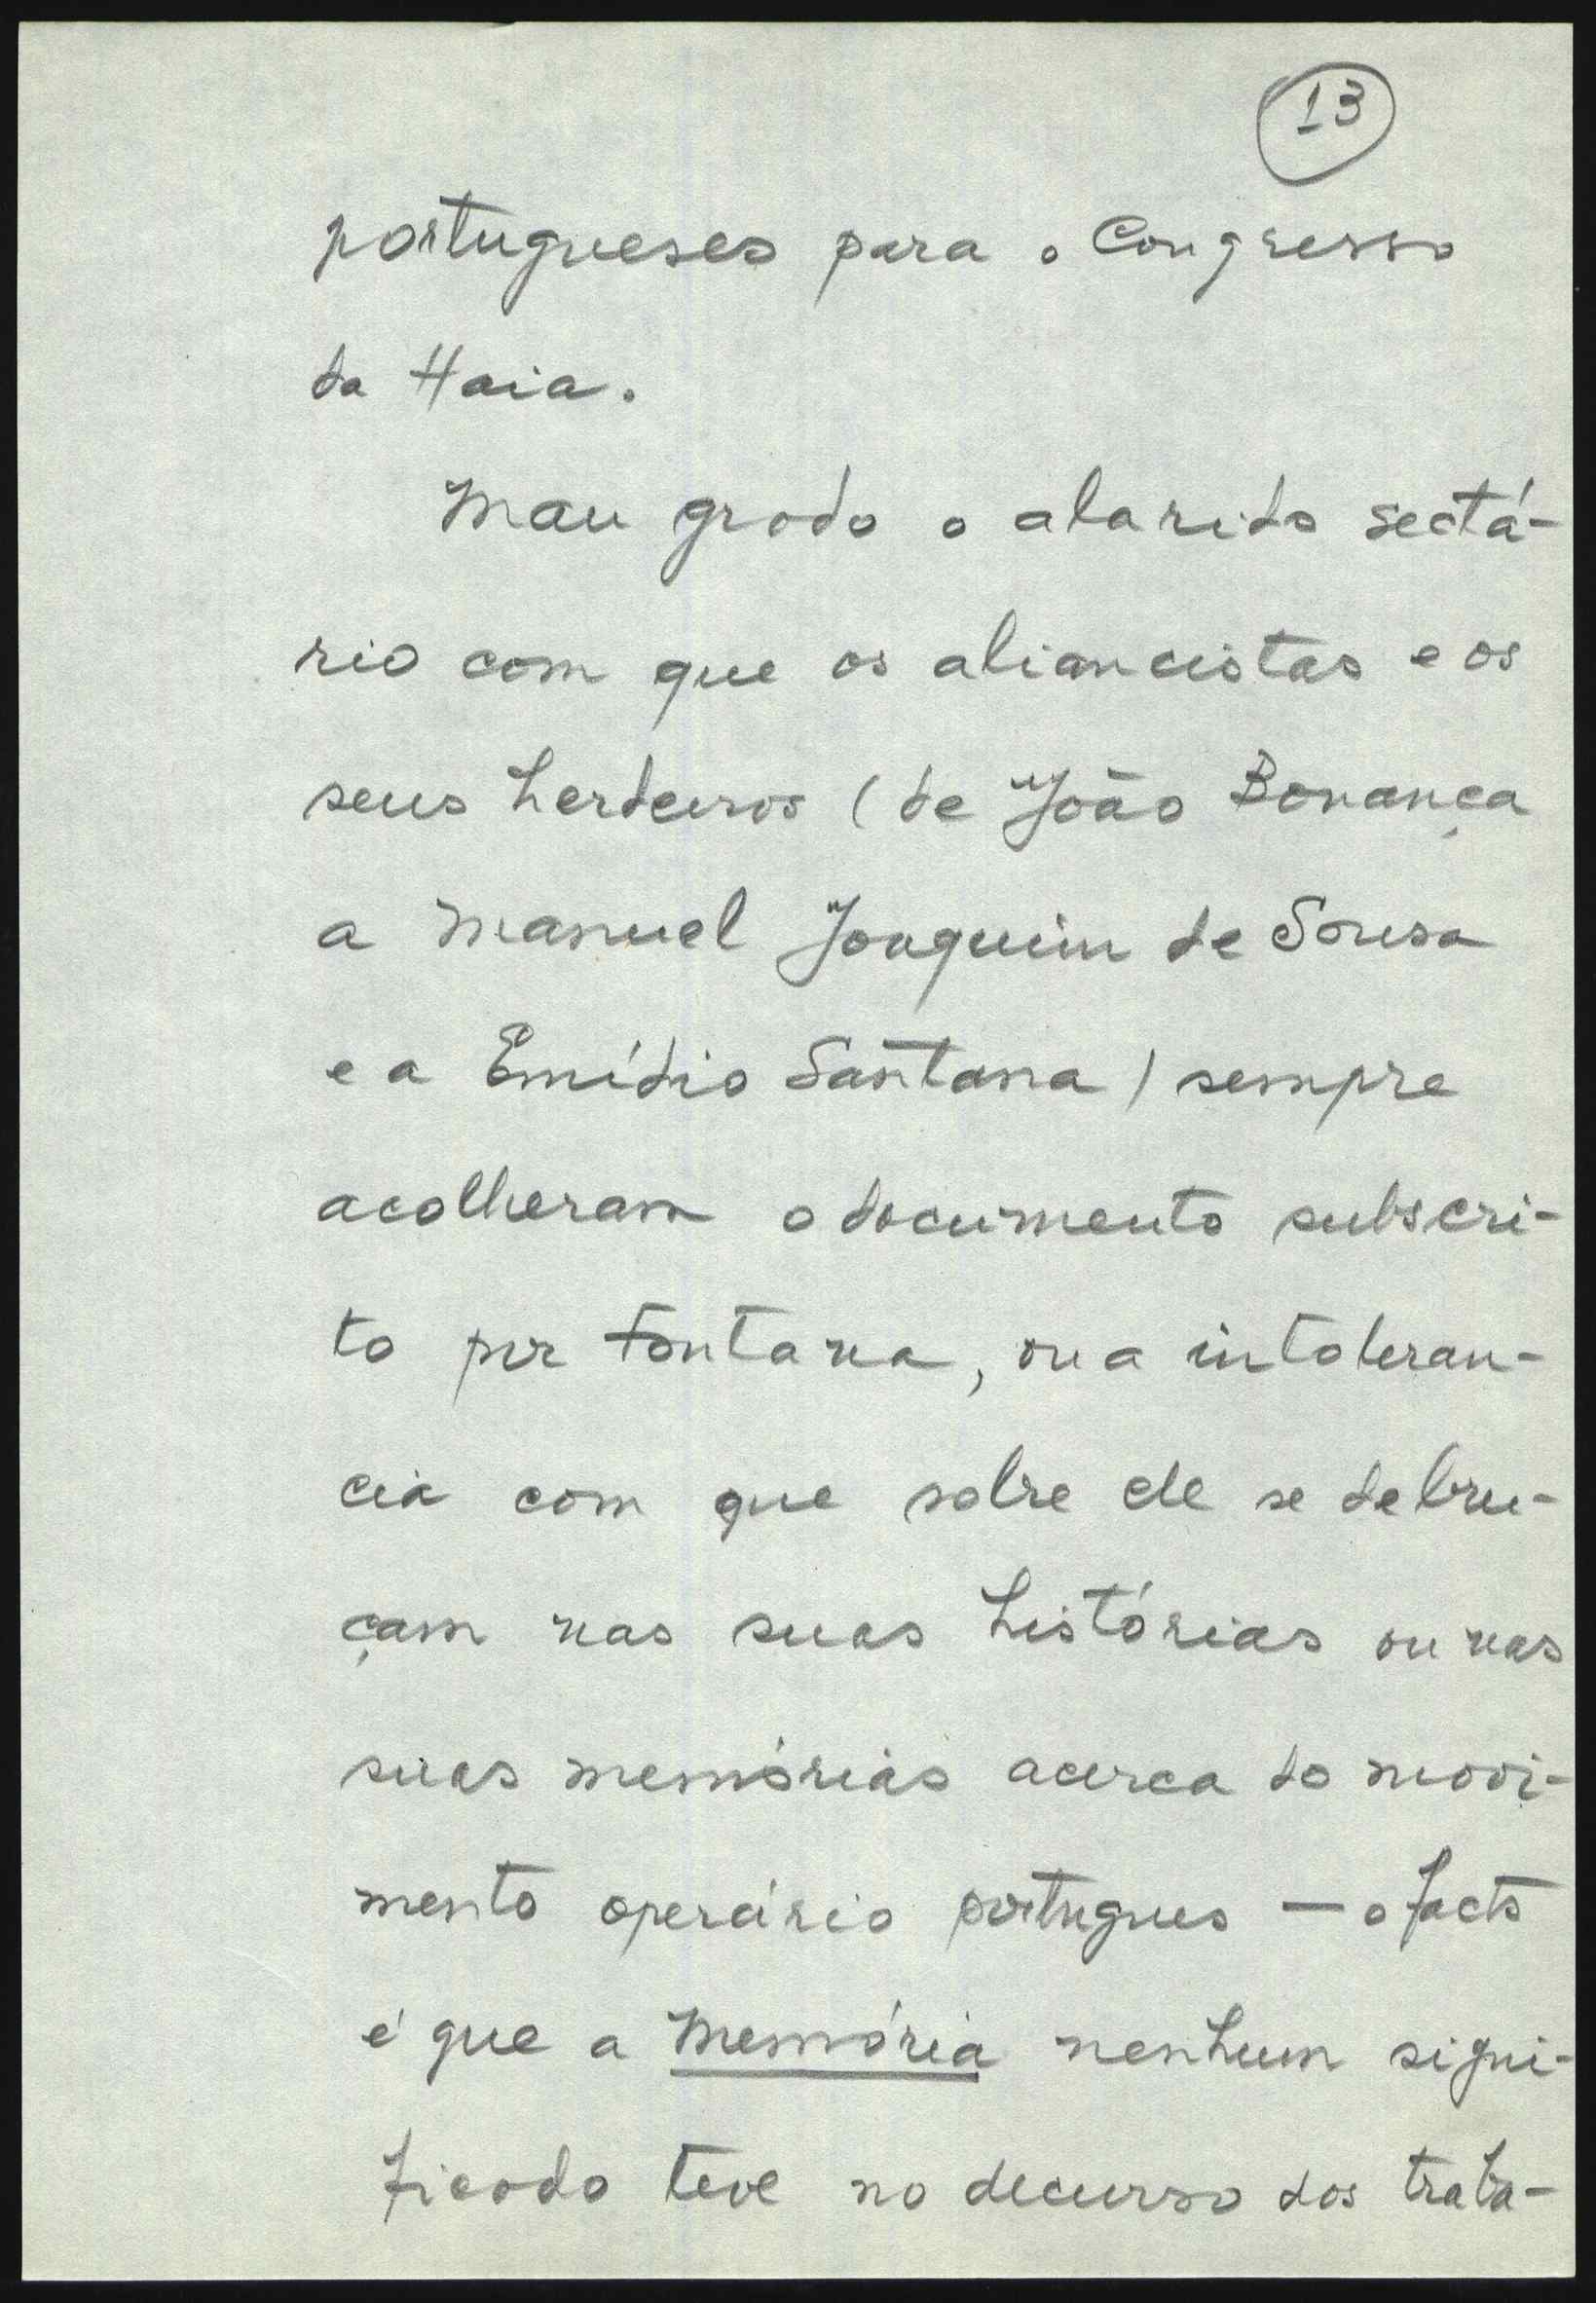 13
portugueses para o Congresso
da Haia.
Mau grado o alarido sectá-
rio com que os aliancistas e os
seus herdeiros (de João Bonança
a Manuel Joaquim de Sousa
e a Emídio Santana) sempre
acolheram o documento subscri-
to por Fontana, ou a intoleran-
cia com que sobre ele se debru-
çam nas suas histórias ou nas
suas memórias acerca do movi-
mento operário portugues — o facto
é que a Memória nenhum signi-
ficado teve no decurso dos traba-